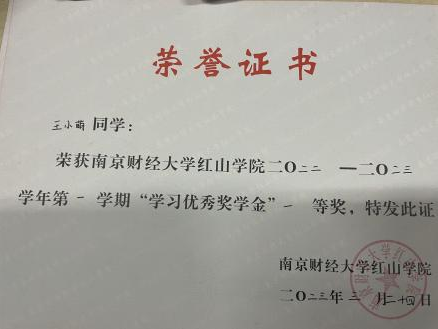 荣誉证书
王小萌 同学：
荣获南京财经大学红山学院二〇二二 —二〇二三
学年第 一 学期“学习优秀奖学金” 一 等奖，特发此证
南京财经大学红山学院
二〇二三年 三 月二十四日